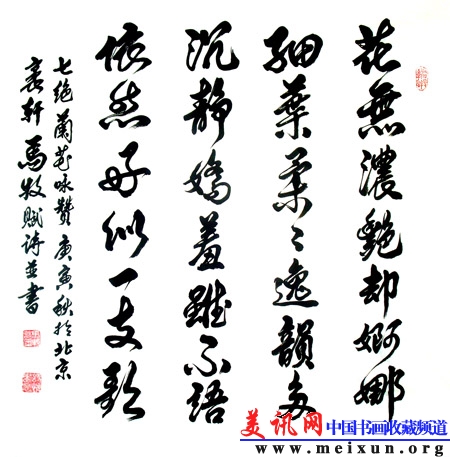 花無濃艷却婀娜
細葉柔々逸韻多
沉静嬌羞雖不語
依然好似一支歌
七绝蘭花咏贊庚寅秋於北京
轩馬牧赋诗並書
美讯网 中国书画收藏频道
www.meixun.org